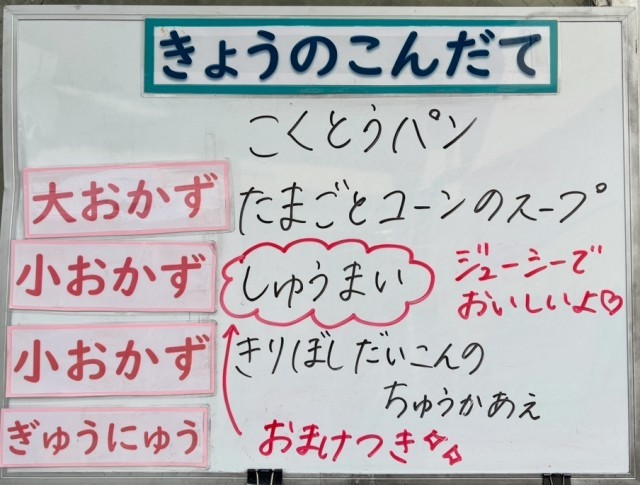 きょうのこんだて
こくとうパン
大おかず たまごとコーンのスープ
小おかず しゅうまい ジューシーで
おいしいよ♡
小おかず きりぼしだいこんの
ちゅうかあえ
ぎゅうにゅう おまけつき